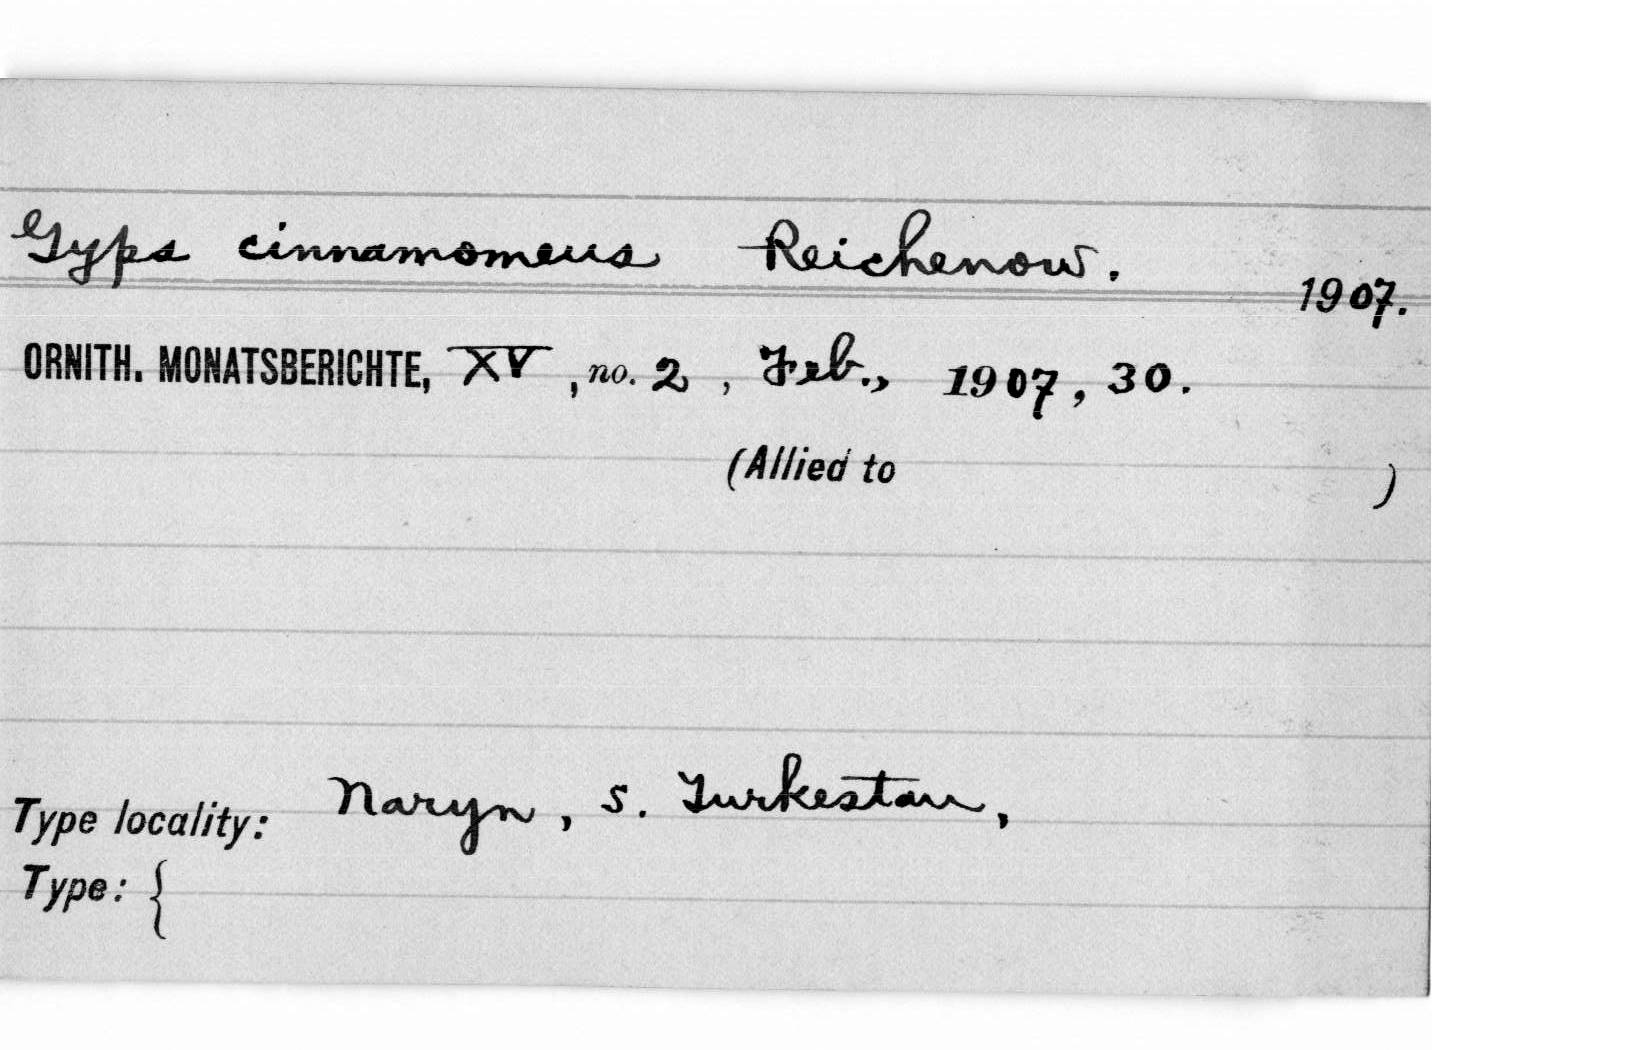 Gyps cinnamomeus Reichenow. 1907.
ORNITH. MONATSBERICHTE, XV, no. 2, Feb., 1907, 30.
(Allied to )
Type locality: Naryn, S. Turkestan,
Type: {